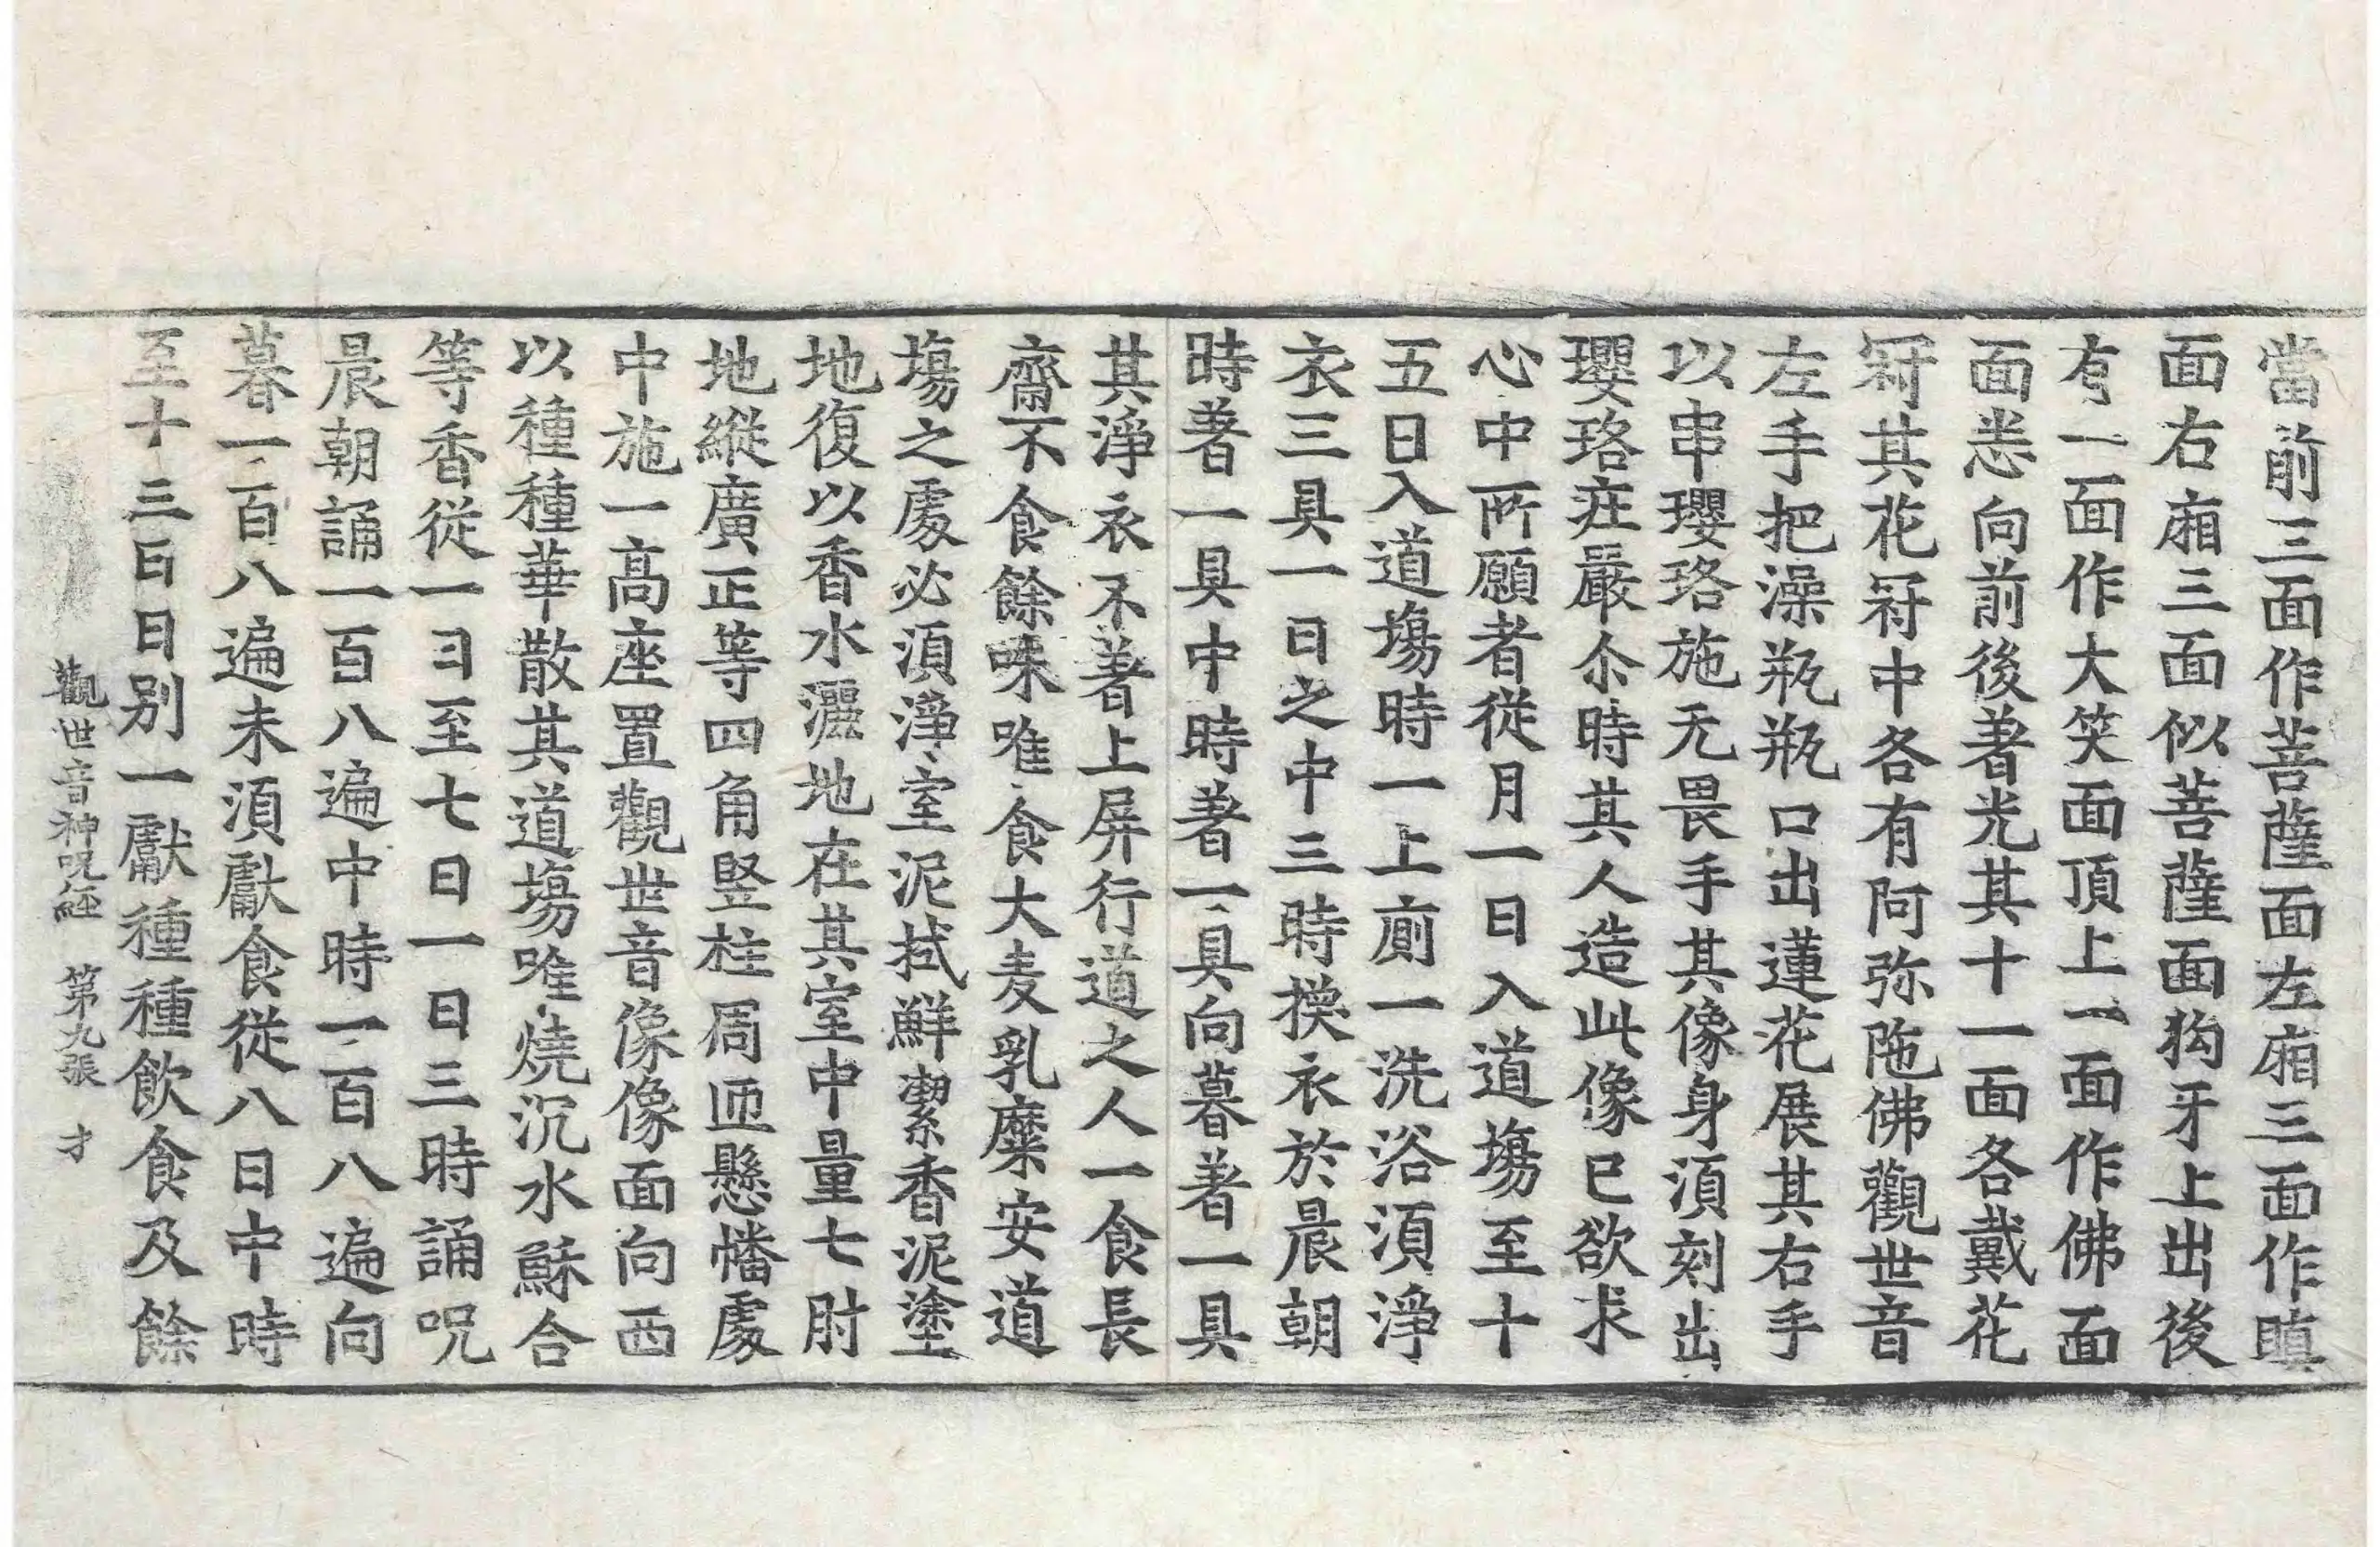 當前三面作菩薩面左廂三面作瞋
面右廂三面似菩薩面狗牙上出後
有一面作大笑面頂上一面作佛面
面悉向前後著光其十一面各戴花
冠其花冠中各有阿弥陁佛觀世音
左手把澡瓶瓶口出蓮花展其右手
以串瓔珞施无畏手其像身湏刻出
瓔珞莊嚴尒時其人造此像已欲求
心中所願者從月一日入道塲至十
五日入道塲時一上廁一洗浴湏淨
衣三具一日之中三時換衣於晨朝
時著一具中時著一具向暮著一具
其淨衣不著上屏行道之人一食長
齋不食餘味唯食大麦乳糜安道
塲之處必湏淨室泥拭鮮潔香泥塗
地復以香水灑地在其室中量七肘
地縱廣正等四角竪柱周迊懸幡處
中施一高座置觀世音像像面向西
以種種華散其道塲唯燒沉水蘇合
等香從一日至七日一日三時誦呪
晨朝誦一百八遍中時一百八遍向
暮一百八遍未湏獻食從八日中時
至十三日日別一獻種種飲食及餘
觀世音神呪経 第九張 才